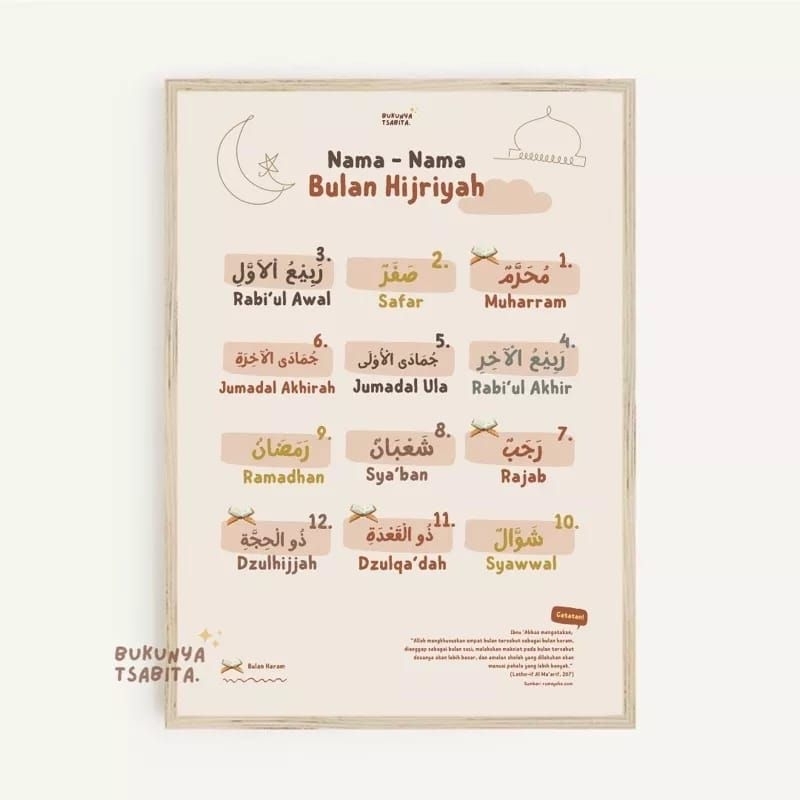 BUKUNYA
TSABITA.
Nama - Nama
Bulan Hijriyah
1.
مُحَرَّمٌ
Muharram
2.
صَفَرٌ
Safar
3.
رَبِيْعُ الْاَوَّلِ
Rabi'ul Awal
4.
رَبِيْعُ الْآخِرِ
Rabi'ul Akhir
5.
جُمَادَى الْأُوْلَى
Jumadal Ula
6.
جُمَادَى الْآخِرَةِ
Jumadal Akhirah
7.
رَجَبٌ
Rajab
8.
شَعْبَانٌ
Sya'ban
9.
رَمَضَانُ
Ramadhan
10.
شَوَّالٌ
Syawwal
11.
ذُو الْقَعْدَةِ
Dzulqa'dah
12.
ذُو الْحِجَّةِ
Dzulhijjah
Catatan!
Ibnu 'Abbas mengatakan,
"Allah mengkhususkan empat bulan tersebut sebagai bulan haram,
dianggap sebagai bulan suci, melakukan maksiat pada bulan tersebut
dosanya akan lebih besar, dan amalan sholeh yang dilakukan akan
menuai pahala yang lebih banyak."
(Latho-if Al Ma'arif, 207)
Sumber: rumaysho.com
Bulan Haram
BUKUNYA
TSABITA.